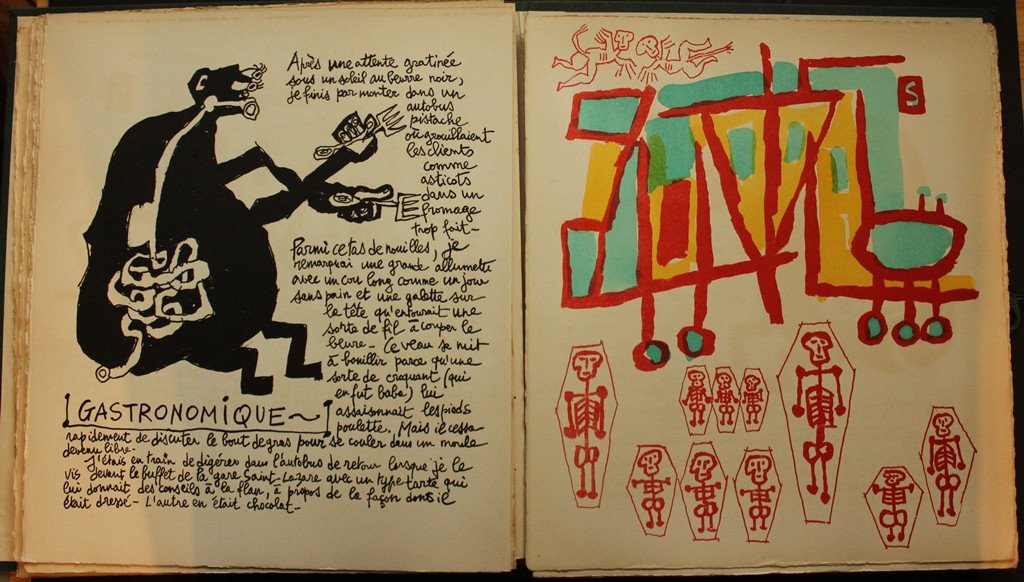 Après une attente gratinée
sous un soleil au beurre noir,
je finis par monter dans un
autobus
pistache
où grouillaient
les clients
comme
asticots
dans un
fromage
trop fait –
Parmi ce tas de nouilles, je
remarquai une grande allumette
avec un cou long comme un jour
sans pain et une galette sur
la tête qu'entourait une
sorte de fil à couper le
beurre – Ce veau se mit
à bouillir parce qu'une
sorte de croquant (qui
en fut baba) lui
assaisonnait les pieds
poulette. Mais il cessa
GASTRONOMIQUE ~
rapidement de discuter le bout de gras pour se couler dans un moule
devenu libre.
J'étais en train de digérer dans l'autobus de retour lorsque je le
vis devant le buffet de la gare Saint-Lazare avec un type tarte qui
lui donnait des conseils à la flan, à propos de la façon dont il
était dressé – L'autre en était chocolat –
S